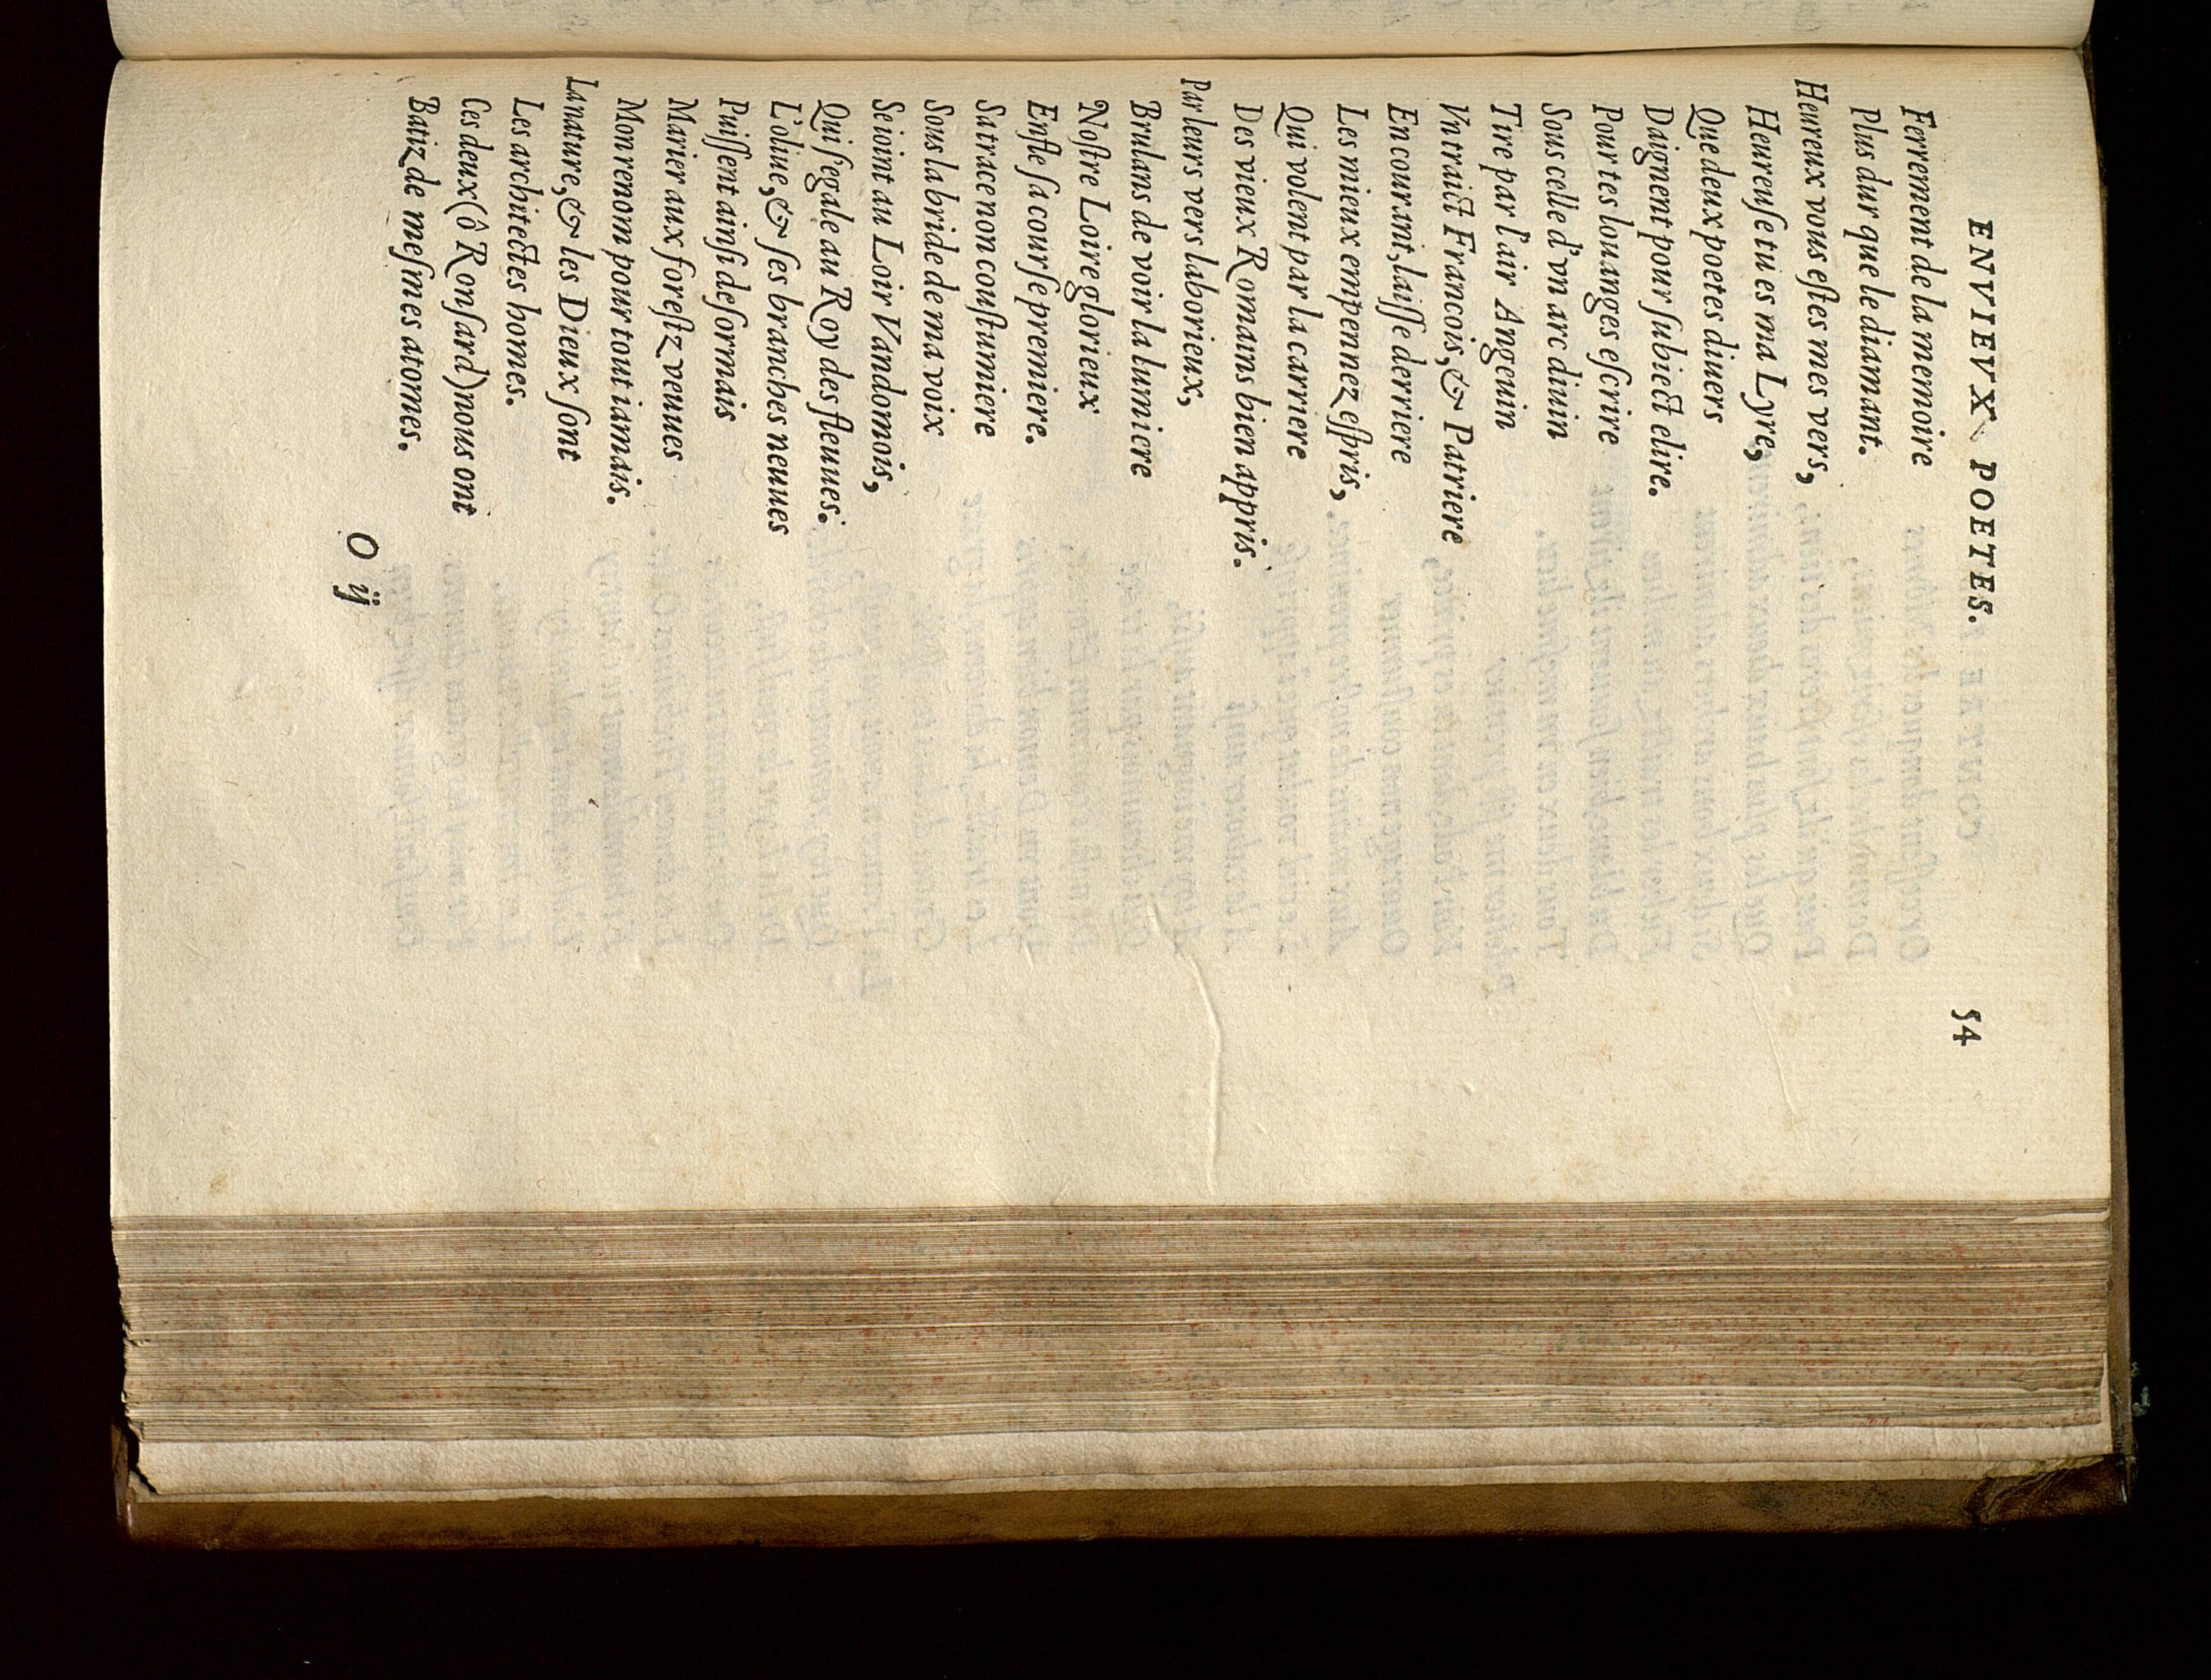 ENVIEVX POETES. 54
Ferrement de la memoire
Plus dur que le diamant.
Heureux vous eſtes mes vers,
Heureuſe tu es ma Lyre,
Que deux poetes diuers
Daignent pour ſubiect elire.
Pour tes louanges eſcrire
Sous celle d'vn arc diuin
Tire par l'air Angeuin
Vn traict Francois, & Patriere
En courant, laiſſe derriere
Les mieux empennez eſpris,
Qui volent par la carriere
Des vieux Romains bien appris.
Par leurs vers laborieux,
Brulans de voir la lumiere
Noſtre Loire glorieux
Enfle ſa courſe premiere.
Sa trace non couſtumiere
Sous la bride de ma voix
Se ioint au Loir Vandomois,
Qui ſegale au Roy des fleuues:
L'oliue, & ſes branches neuues
Puiſſent ainſi deſormais
Marier aux foreſtz veuues
Mon renom pour tout iamais.
La nature, & les Dieux ſont
Les architectes homes.
Ces deux (ô Ronſard) nous ont
Batiz de meſmes atomes.
O ij